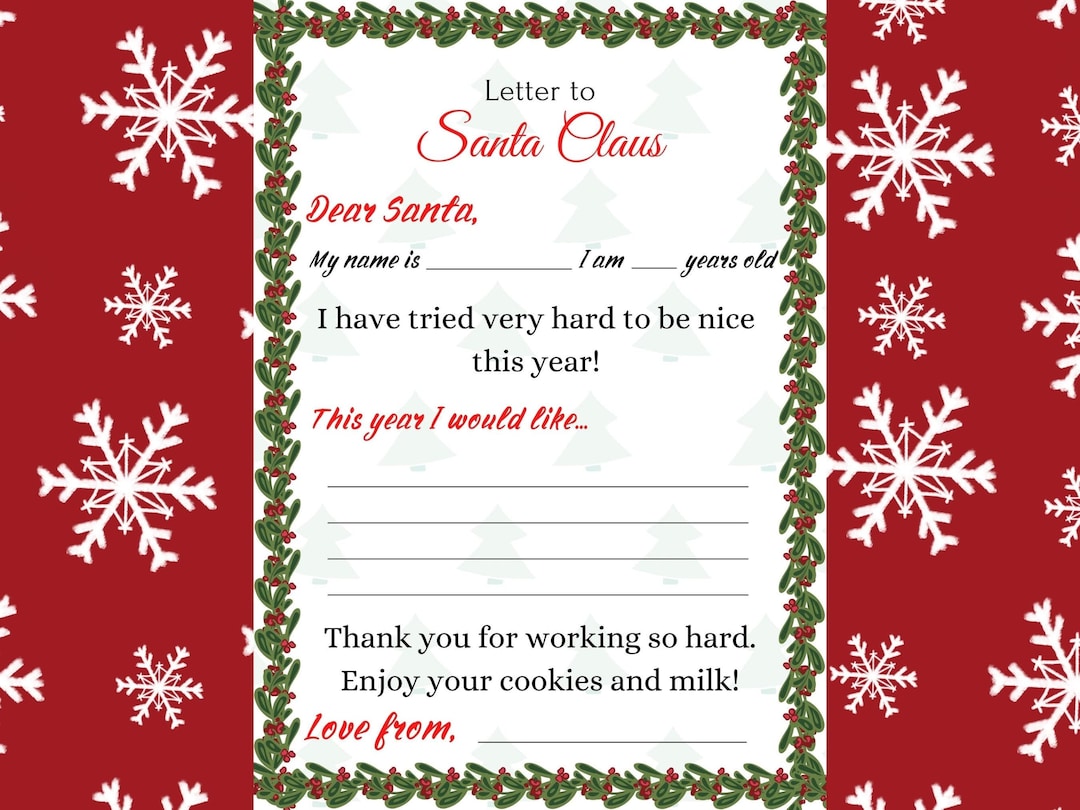 Letter to
Santa Claus
Dear Santa,
My name is ____________ I am ____ years old
I have tried very hard to be nice
this year!
This year I would like...
Thank you for working so hard.
Enjoy your cookies and milk!
Love from, ______________________